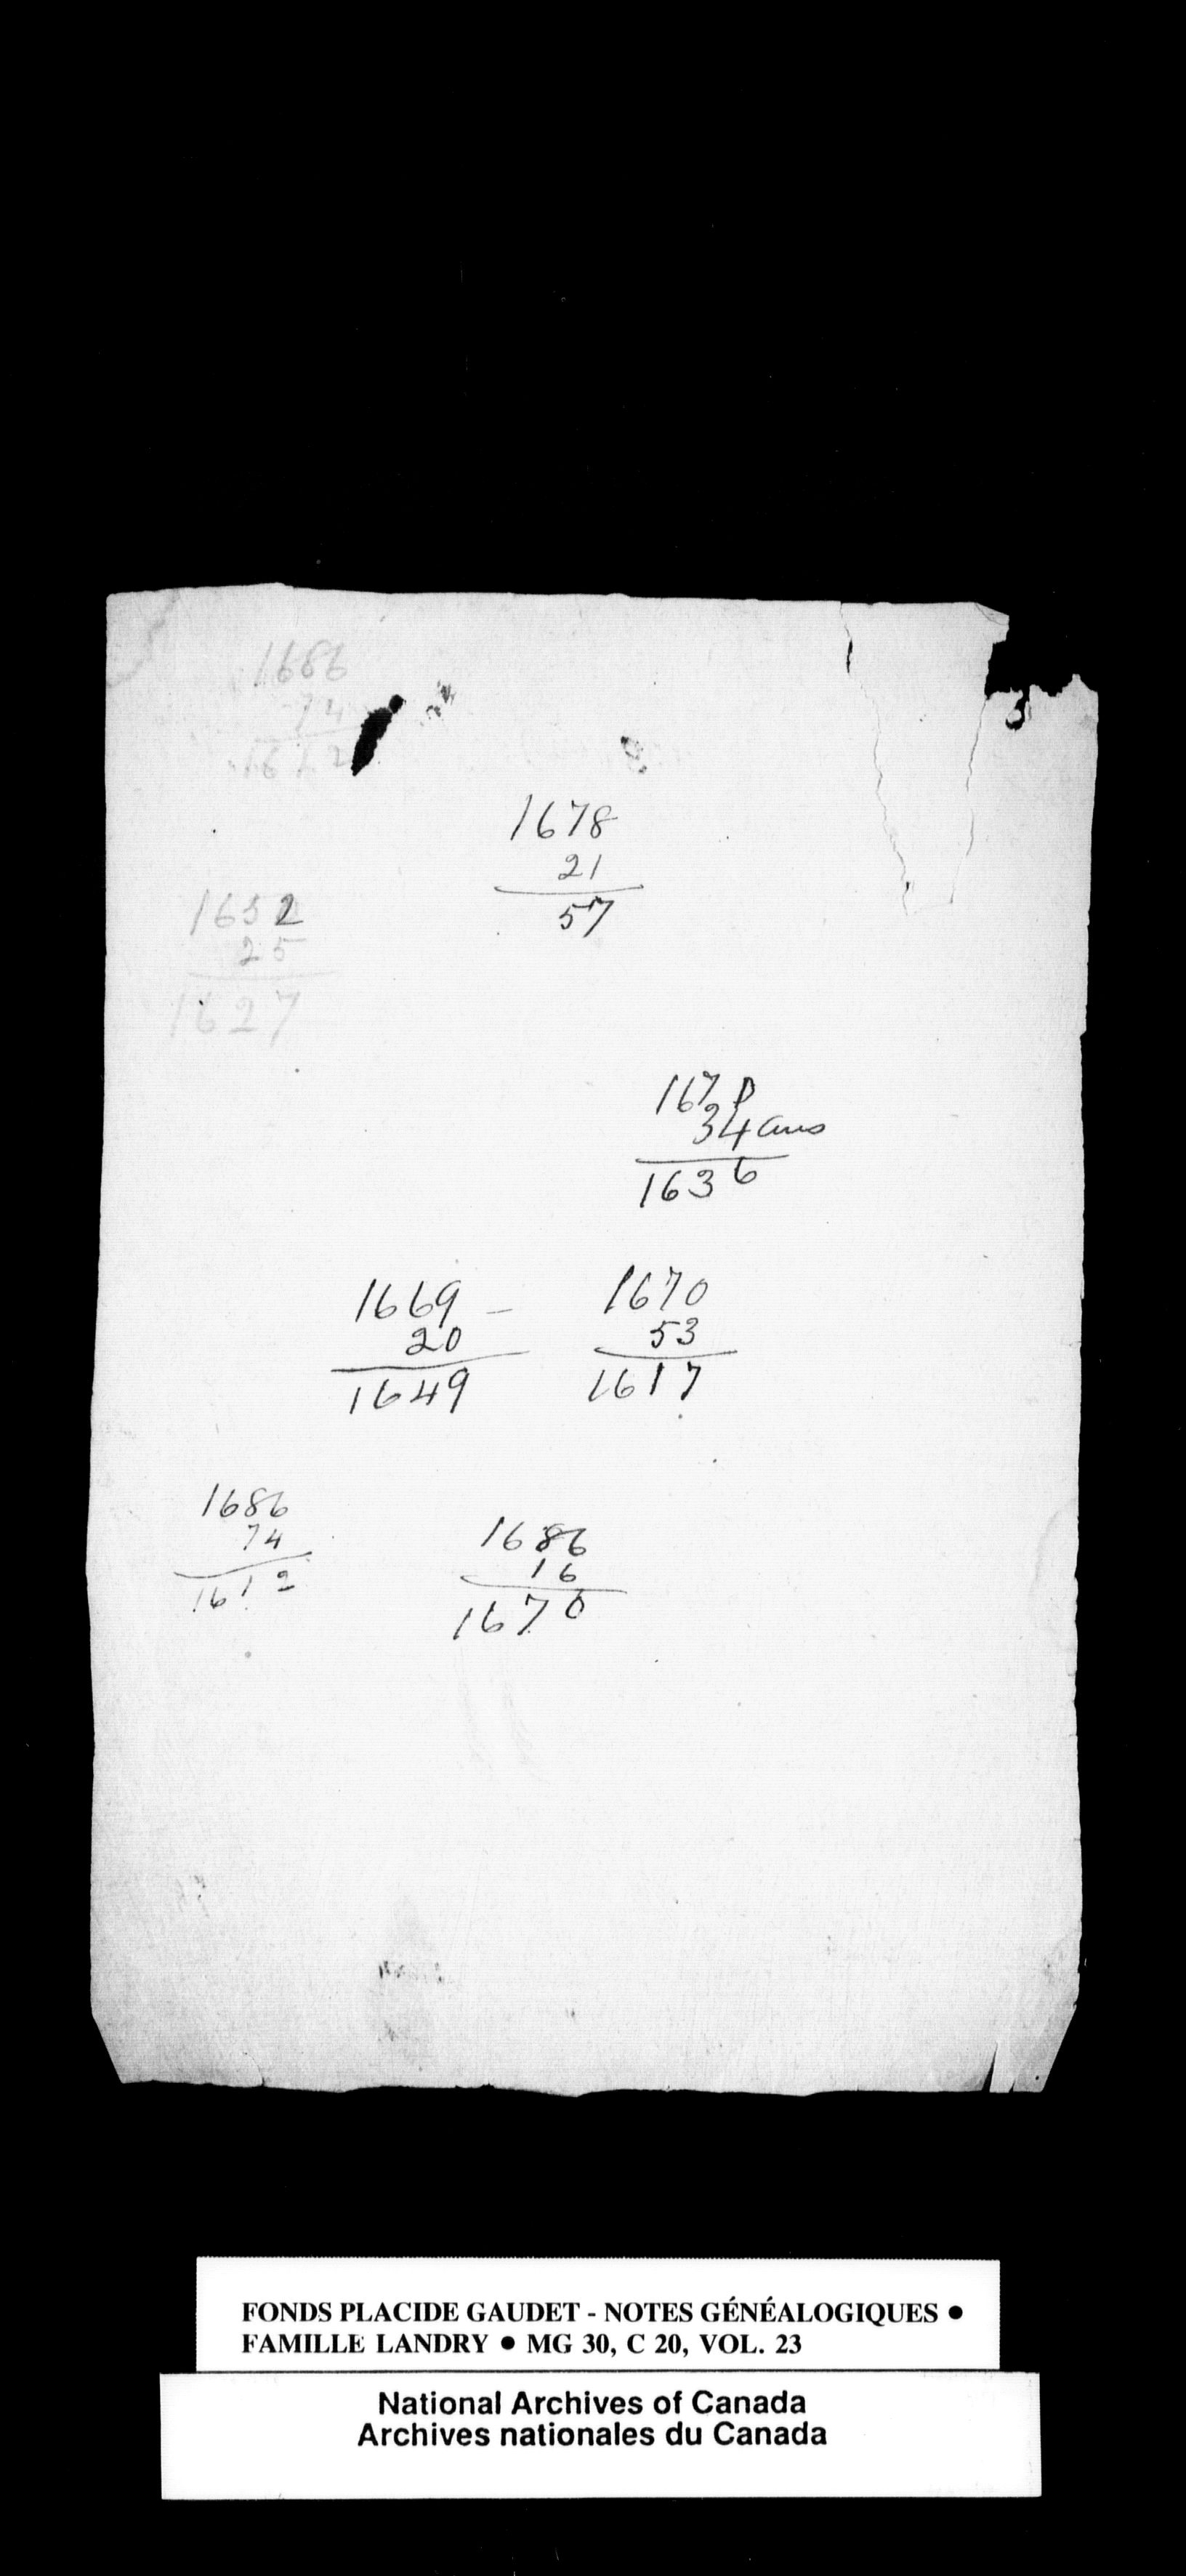 1686
74
1612
1678
21
57
1652
25
1627
1670
34 ans
1636
1669 –
20
1649
1670
53
1617
1686
74
1612
1686
16
1670
FONDS PLACIDE GAUDET - NOTES GÉNÉALOGIQUES ●
FAMILLE LANDRY ● MG 30, C 20, VOL. 23
National Archives of Canada
Archives nationales du Canada